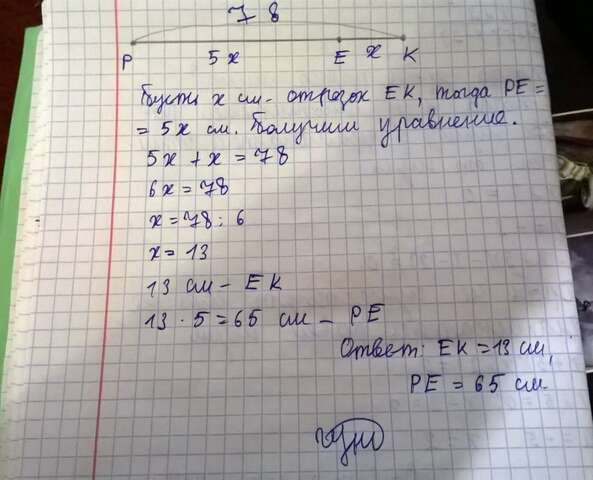 78
P 5x E x K
Пусть x см - отрезок EK, тогда PE =
= 5x см. Получим уравнение.
5x + x = 78
6x = 78
x = 78 : 6
x = 13
13 см - EK
13 · 5 = 65 см - PE
Ответ: EK = 13 см,
PE = 65 см